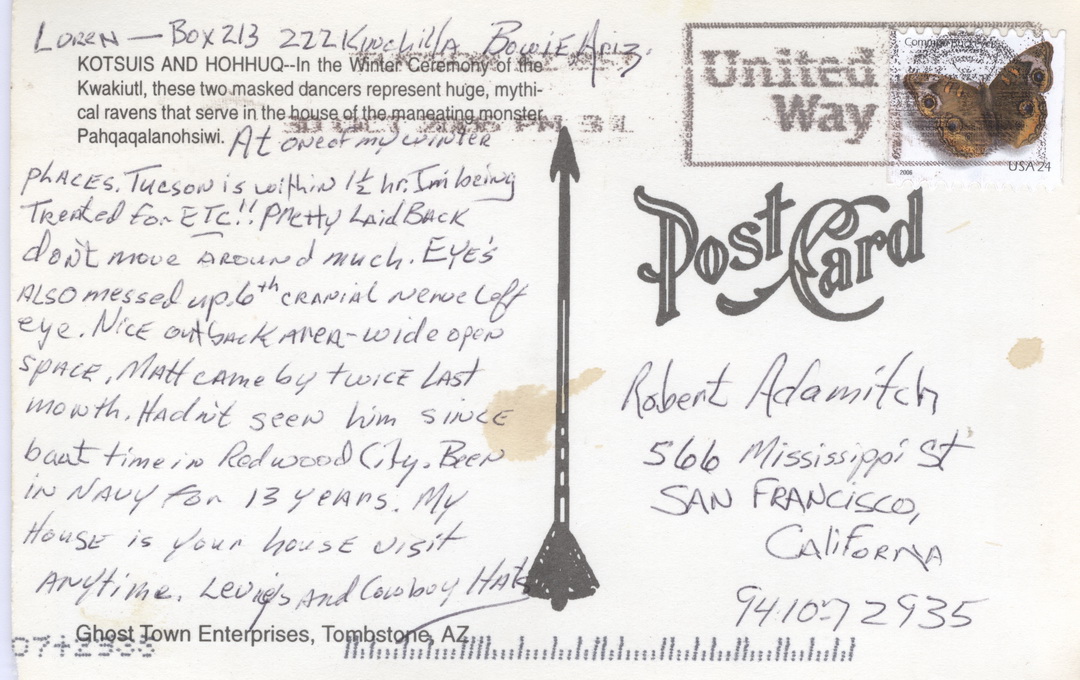 LOREN — BOX 213 222 Kinchilla BOWIE ARIZ.
KOTSUIS AND HOHHUQ--In the Winter Ceremony of the
Kwakiutl, these two masked dancers represent huge, mythi-
cal ravens that serve in the house of the maneating monster
Pahqaqalanohsiwi. At one of my winter
places. Tucson is within 1½ hr. I'm being
Treated for ETC!! Pretty Laid Back
don't move around much. EYE's
ALSO messed up. 6th cranial nerve left
eye. Nice outback area-wide open
space. Matt came by twice last
month. Hadn't seen him since
boat time in Redwood City. Been
in NAVY for 13 years. My
House is your house visit
Anytime. Levi's and Cowboy Hats
Ghost Town Enterprises, Tombstone, AZ
United
Way
2006
USA 24
Post Card
Robert Adamitch
566 Mississippi St
SAN FRANCISCO,
CALIFORNA
94107 2935